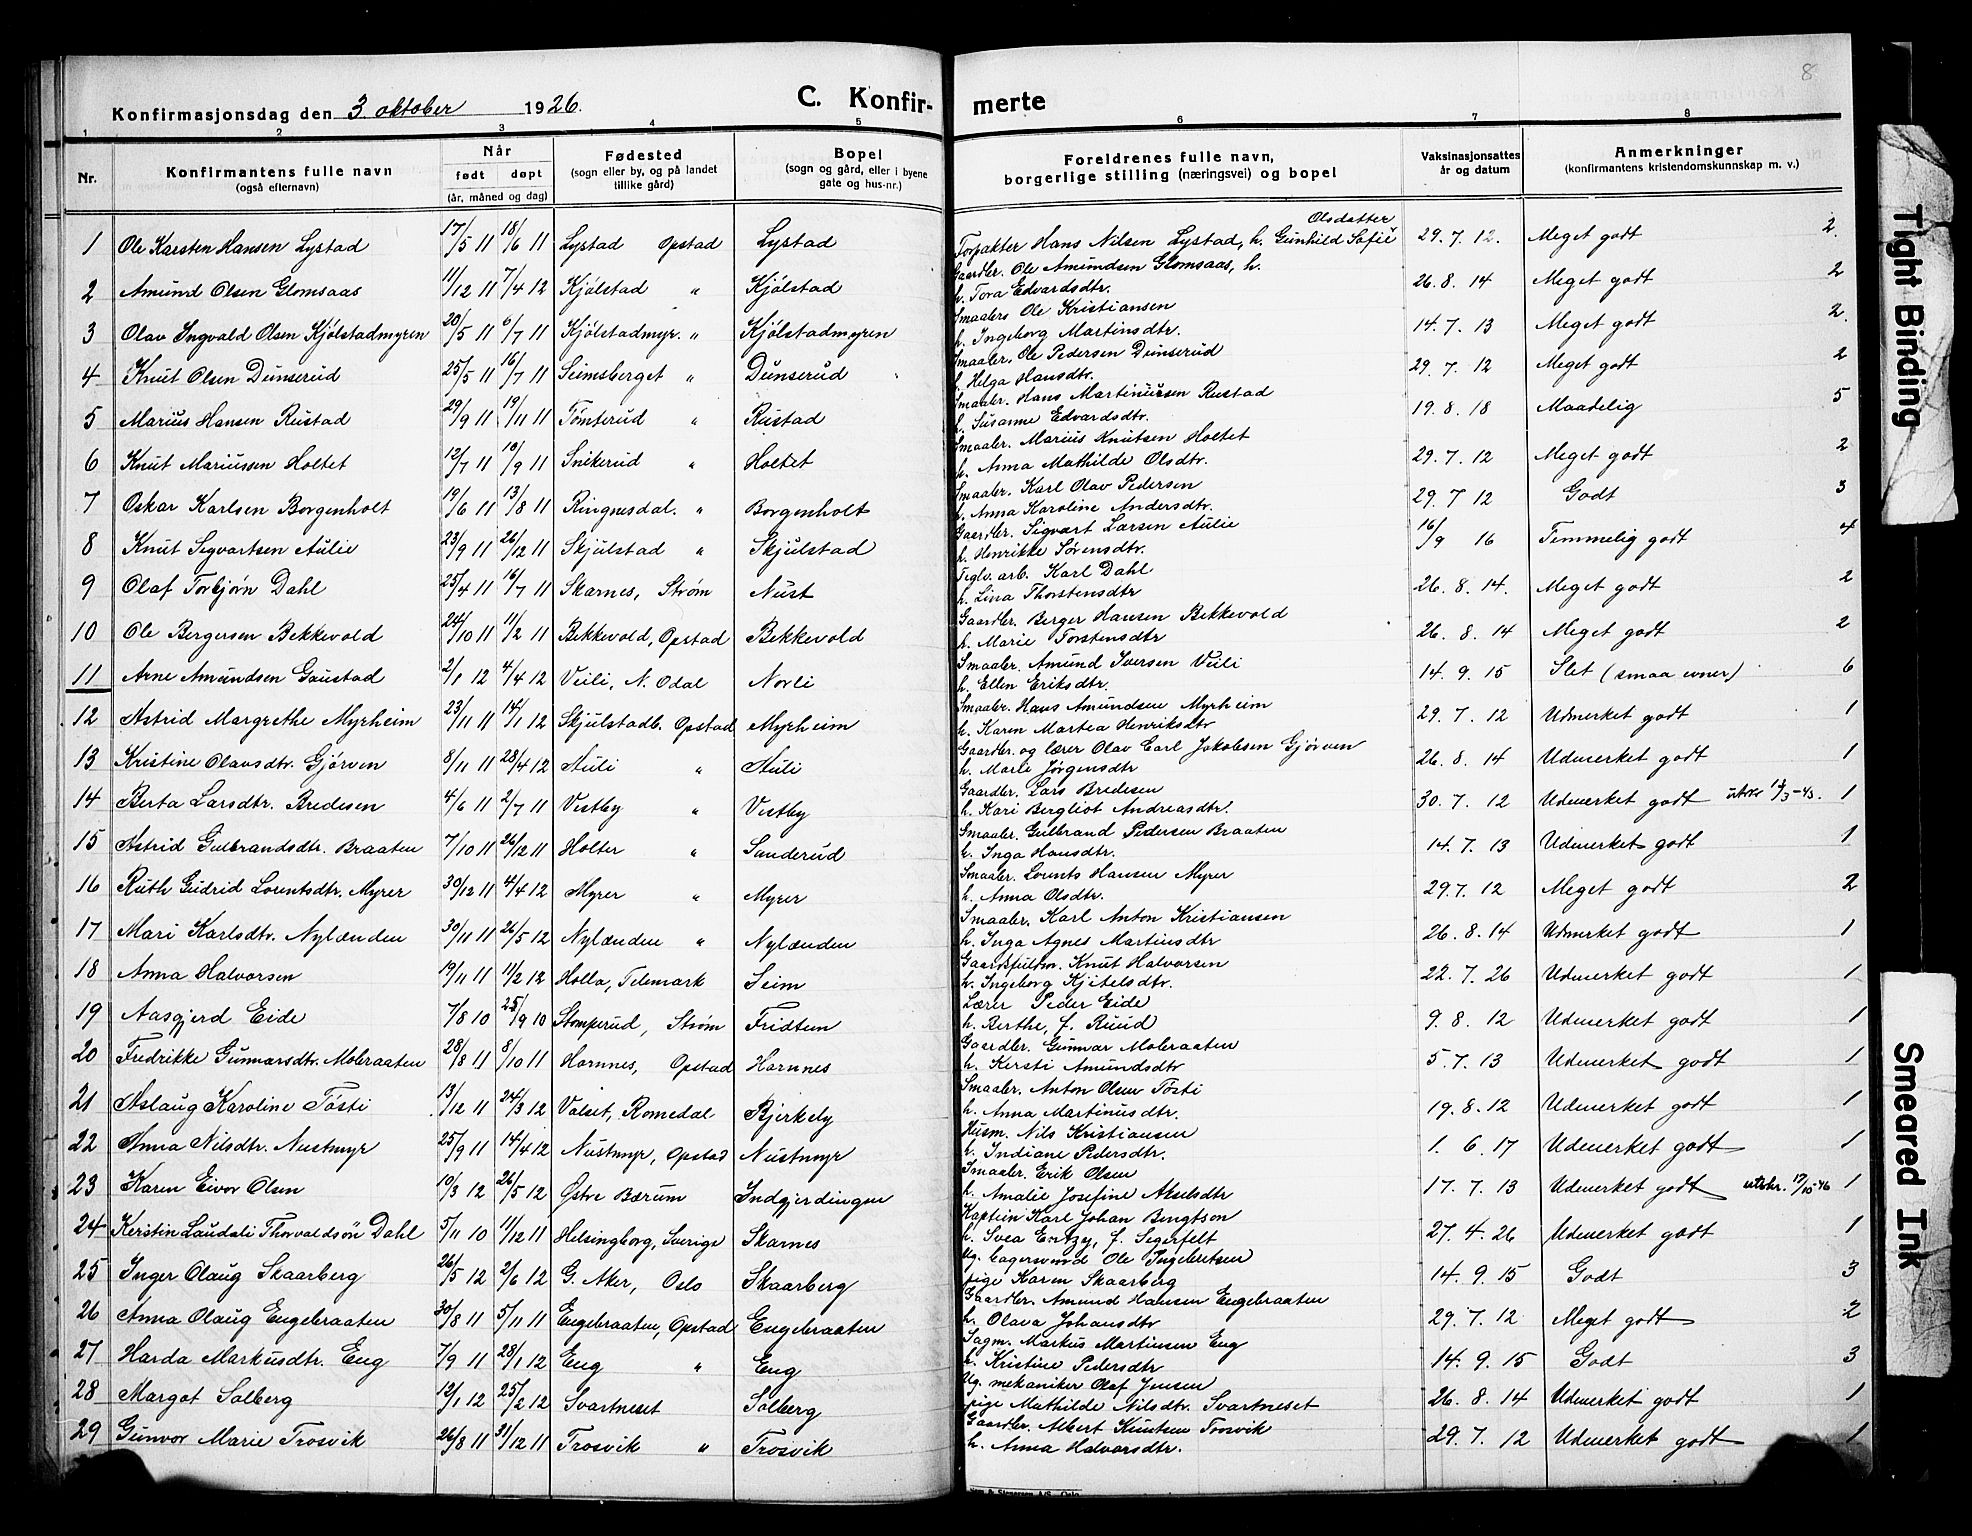 8
Konfirmasjonsdag den 3. oktober 1926.
C. Konfir- merte
1 2 3 4 5 6 7 8
Nr.
Konfirmantens fulle navn (også efternavn)
Når født døpt (år, måned og dag)
Fødested (sogn eller by, og på landet tillike gård)
Bopel (sogn og gård, eller i byene gate og hus-nr.)
Foreldrenes fulle navn, borgerlige stilling (næringsvei) og bopel
Vaksinasjonsattes år og datum
Anmerkninger (konfirmantens kristendomskunnskap m. v.)
1 Ole Karsten Hansen Lystad 17/5 11 18/6 11 Lystad Opstad Lystad Forpakter Hans Nilsen Lystad, h. Gunhild Sofie Olsdatter 29.7.12. Meget godt 2.
2 Amund Olsen Glomsaas 11/12 11 7/4 12 Kjølstad " Kjølstad Gaardbr. Ole Amundsen Glomsaas, h. h. Tora Edvardsdtr. 26.8.14 Meget godt 2
3 Olav Ingvald Olsen Kjølstadmyren 20/5 11 6/7 11 Kjølstadmyr. " Kjølstadmyren Smaabr. Ole Kristiansen h. Ingeborg Martinsdtr. 14.7.13 Meget godt 2.
4 Knut Olsen Dunserud 25/5 11 16/7 11 Seimsberget " Dunserud Smaabr. Ole Pedersen Dunserud h. Helga Hansdtr. 29.7.12 Meget godt 2
5 Marius Hansen Rustad 29/9 11 19/11 11 Tømterud " Rustad Smaabr. Hans Martinussen Rustad h. Susanne Edvardsdtr. 19.8.18 Maadelig 5
6 Knut Mariussen Holtet 12/7 11 10/9 11 Snikerud " Holtet Smaabr. Marius Knutsen Holtet h. Anna Mathilde Olsdtr. 29.7.12 Meget godt 2
7 Oskar Karlsen Borgenholt 19/6 11 13/8 11 Ringnesdal. " Borgenholt Smaabr. Karl Olav Pedersen h. Anna Karoline Andersdtr. 29.7.12 Godt 3
8 Knut Segvartsen Aulie 23/9 11 26/12 11 Skjulstad " Skjulstad Gaardbr. Segvart Larsen Aulie h. Henrikke Sørensdtr. 16/9 16 Temmelig godt 4
9 Olaf Torbjørn Dahl 25/4 11 16/7 11 Skarnes, Strøm Nust Teglv. arb. Karl Dahl h. Lina Thorstensdtr 26.8.14. Meget godt 2
10 Ole Bergersen Bekkevold 24/10 11 11/2 11 Bekkevold, Opstad Bekkevold Gaardbr. Berger Hansen Bekkevold h. Marie Torstensdtr 26.8.14 Meget godt 2
11 Arne Amundsen Gaustad 2/1 12 4/4 12 Veili, N. Odal Norli Smaabr. Amund Iversen Veili h. Ellen Eriksdtr. 14.9.15 Slet (smaa evner) 6
12 Astrid Margrethe Myrheim 23/11 11 14/1 12 Skjulstadb. Opstad Myrheim Smaabr. Hans Amundsen Myrheim h. Karen Martea Henriksdtr 29.7.12 Udmerket godt 1
13 Kristine Olavsdtr. Gjørven 8/11 11 28/4 12 Auli " Auli Gaardbr. og lærer Olav Carl Jakobsen Gjørven h. Marli Jørgensdtr 26.8.14 Udmerket godt 1
14 Berta Larsdtr. Bredesen 4/6 11 2/7 11 Vestby " Vestby Gaardbr. Lars Bredesen h. Kari Bergliot Andreasdtr. 30.7.12 Udmerket godt 1
15 Astrid Gulbrandsdtr. Braaten 7/10 11 26/12 11 Holter " Sanderud Smaabr. Gulbrand Pedersen Braaten h. Inga Hansdtr. 14.7.13 Udmerket godt 1
16 Ruth Gudrid Lorentsdtr. Myrer 30/12 11 4/4 12 Myrer " Myrer Smaabr. Lorents Hansen Myrer h. Anna Olsdtr. 29.7.12 Meget godt 2
17 Mari Karlsdtr. Nylænden 30/11 11 26/5 12 Nylænden " Nylænden Smaabr. Karl Anton Kristiansen h. Inga Agnes Martinsdtr 26.8.14 Udmerket godt 1
18 Anna Halvorsen 19/11 11 11/2 12 Holla, Telemark Seim Gaardsfuldm. Knut Halvorsen h. Ingeborg Kjitelsdtr. 22.7.26 Udmerket godt 1
19 Aasgjerd Eide 7/8 10 25/9 10 Stomperud, Strøm Fridtun Lærer Peder Eide h. Berthe, f. Ruud 9.8.12 Udmerket godt 1
20 Fredrikke Gunnarsdtr. Mobraaten 28/8 11 8/10 11 Hornnes, Opstad Hornnes Gaardbr. Gunnar Mobraaten h. Kersti Amundsdtr 5.7.13 Udmerket godt 1
21 Aslaug Karoline Tøsti 13/12 11 24/3 12 Valset, Romedal Bjerkely Smaabr. Anton Olsen Tøsti h. Anna Martinusdtr. 19.8.12 Udmerket godt 1
22 Anna Nilsdtr. Nustmyr 25/9 11 14/4 12 Nustmyr, Opstad Nustmyr Husm. Nils Kristiansen h. Indiane Pedersdtr. 1.6.17 Udmerket godt 1
23 Karen Eivor Olsen 10/3 12 26/5 12 Østre Bærum Indgjerdingen Smaabr. Erik Olsen h. Amalie Josefine Akselsdtr 17.7.13 Udmerket godt utskr. 17/10-46 1
24 Kerstin Laudali Thorvaldsön Dahl 5/11 10 11/12 11 Helsingborg, Sverige Skarnes Kaptein Karl Johan Bengtson h. Svea f. Segerfelt 27.4.26 Udmerket godt 1
25 Inger Olaug Skaarberg 26/5 12 2/6 12 G. Aker, Oslo Skaarberg Ug. Ole Ingebretsen pige Karen Skaarberg 14.9.15 Godt 3
26 Anna Olaug Engebraaten 30/8 11 5/11 11 Engebraaten, Opstad Engebraaten Gaardbr. Amund Hansen Engebraaten h. Olava Johansdtr 29.7.12 Meget godt 2
27 Harda Markusdtr. Eng 7/9 11 28/1 12 Eng " Eng Sagm. Markus Martinsen Eng h. Kristine Pedersdtr 14.9.15 Godt 3
28 Margot Solberg 12/1 12 25/2 12 Svartneset Solberg Ug. mekaniker Olaf Jensen pige Mathilde Nilsdtr. Svartneset 26.8.14 Udmerket godt 1
29 Gunvor Marie Trosvik 26/8 11 31/12 11 Trosvik " Trosvik Gaardbr. Albert Knutsen Trosvik h. Anna Halvorsdtr. 29.7.12 Udmerket godt 1
Tight Binding
Smeared Ink